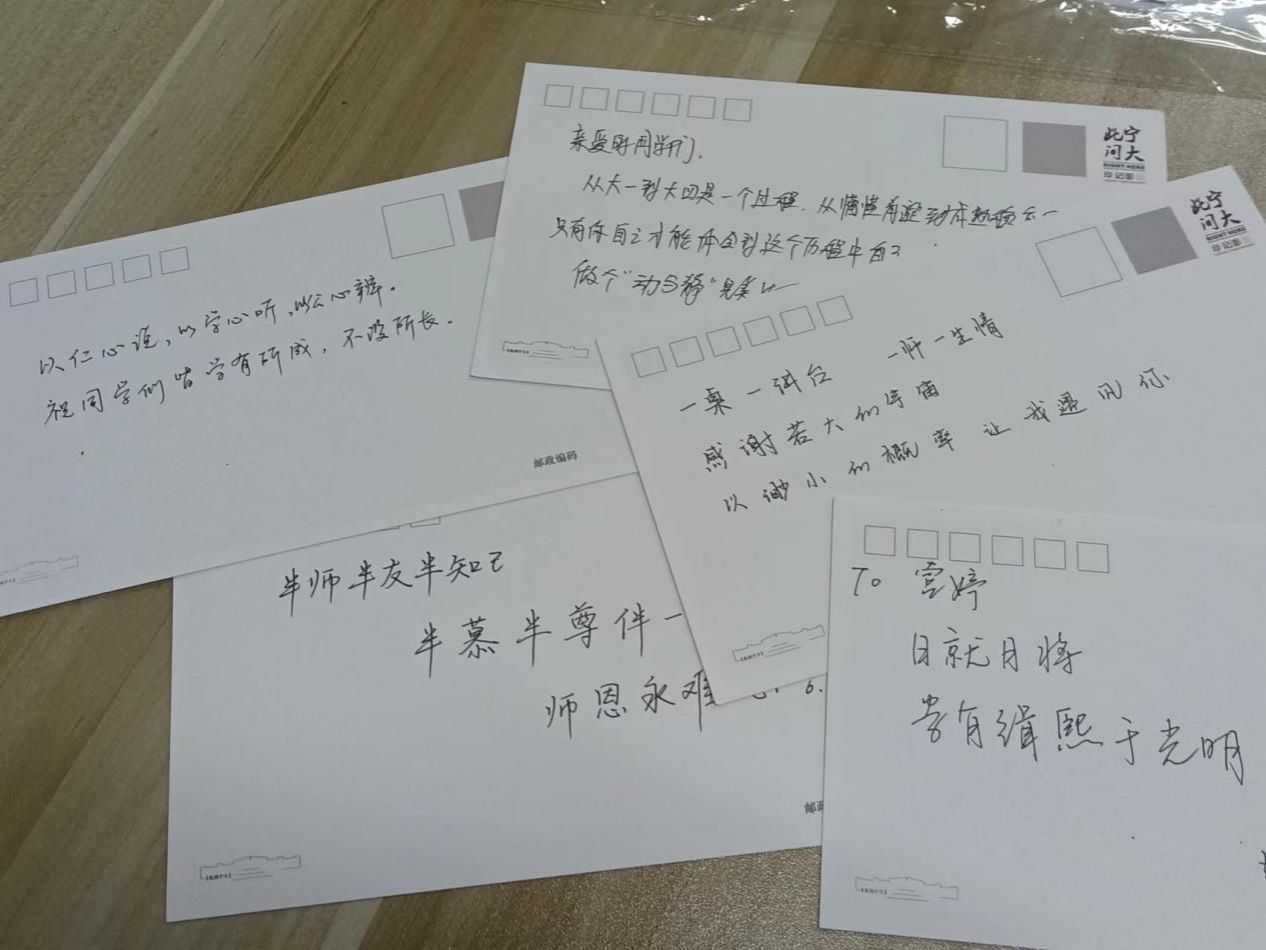 亲爱的同学们.
从大一到大四是一个过程.从懵懂
只有你自己才能体会到这个历程中自己
做个"动与静"
宁大
此间
RIGHT HERE
印记影
以仁心说,以学心听,以公心辨。
祝同学们皆学有所成,不没所长.
邮政编码
一桌一讲台 一忏一生情
感谢若大的宇宙
以渺小的概率让我遇见你
宁大
此间
RIGHT HERE
印记影
半师半友半知己
半慕半尊伴一
师恩永难
6.
邮政
To 宫婷
日就月将
学有缉熙于光明